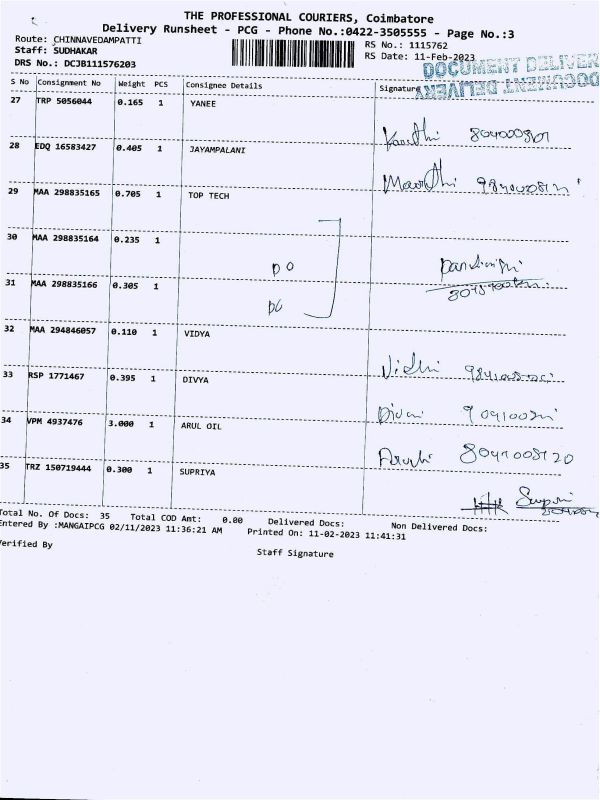 THE PROFESSIONAL COURIERS, Coimbatore
Delivery Runsheet - PCG - Phone No.:0422-3505555 - Page No.:3
Route: CHINNAVEDAMPATTI
RS No.: 1115762
Staff: SUDHAKAR
RS Date: 11-Feb-2023
DRS No.: DCJB111576203
DOCUMENT DELIVER
DOCUMENT DELIVERY
S No Consignment No Weight PCS Consignee Details Signature
27 TRP 5056044 0.165 1 YANEE
28 EDQ 16583427 0.405 1 JAYAMPALANI
29 MAA 298835165 0.705 1 TOP TECH
30 MAA 298835164 0.235 1
DO
31 MAA 298835166 0.305 1
DO
32 MAA 294846057 0.110 1 VIDYA
33 RSP 1771467 0.395 1 DIVYA
34 VPM 4937476 3.000 1 ARUL OIL
35 TRZ 150719444 0.300 1 SUPRIYA
Total No. Of Docs: 35 Total COD Amt: 0.00 Delivered Docs: Non Delivered Docs:
Entered By :MANGAIPCG 02/11/2023 11:36:21 AM Printed On: 11-02-2023 11:41:31
Verified By
Staff Signature